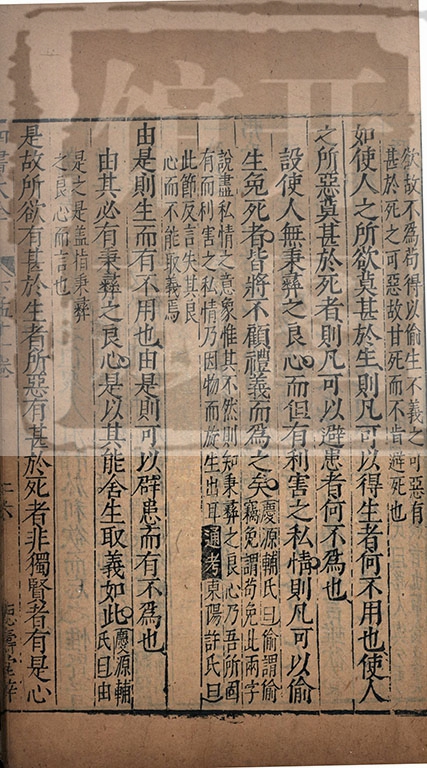 欲故不爲苟得以偷生不義之可惡有
甚於死之可惡故甘死而不肯避死也
如使人之所欲莫甚於生則凡可以得生者何不用也使人
之所惡莫甚於死者則凡可以避患者何不爲也
設使人無秉彝之良心而但有利害之私情則凡可以偷
生免死者皆將不顧禮義而爲之矣慶源輔氏曰偷謂偷
竊免謂苟免此兩字
說盡私情之意象惟其不然則知秉彝之良心乃吾所固
有而利害之私情乃因物而旋生出耳通考東陽許氏曰
此節反言失其良
心而不能取義焉
由是則生而有不用也由是則可以辟患而有不爲也
由其必有秉彝之良心是以其能舍生取義如此慶源輔
氏曰由
是之是蓋指秉彝
之良心而言也
是故所欲有甚於生者所惡有甚於死者非獨賢者有是心
四書大全